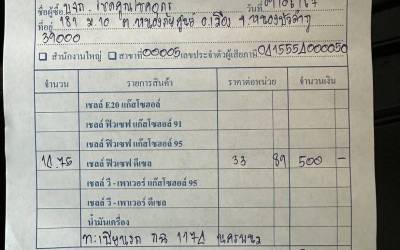 ชื่อผู้ซื้อ หจก. โชคคูณโชคถาวร วันที่
ที่อยู่ 181 ม.10 ต.หนองภัยศูนย์ อ.เมือง จ.หนองบัวลำภู
39000
สำนักงานใหญ่ สาขาที่ 00005 เลขประจำตัวผู้เสียภาษี
จำนวน รายการสินค้า ราคาต่อหน่วย จำนวนเงิน
เชลล์ E20 แก๊สโซฮอล์
เชลล์ ฟิวเซฟ แก๊สโซฮอล์ 91
เชลล์ ฟิวเซฟ แก๊สโซฮอล์ 95
14.75 เชลล์ ฟิวเซฟ ดีเซล 33 89 500 -
เชลล์ วี - เพาเวอร์ แก๊สโซฮอล์ 95
เชลล์ วี - เพาเวอร์ ดีเซล
น้ำมันเครื่อง
ทะเบียนรถ